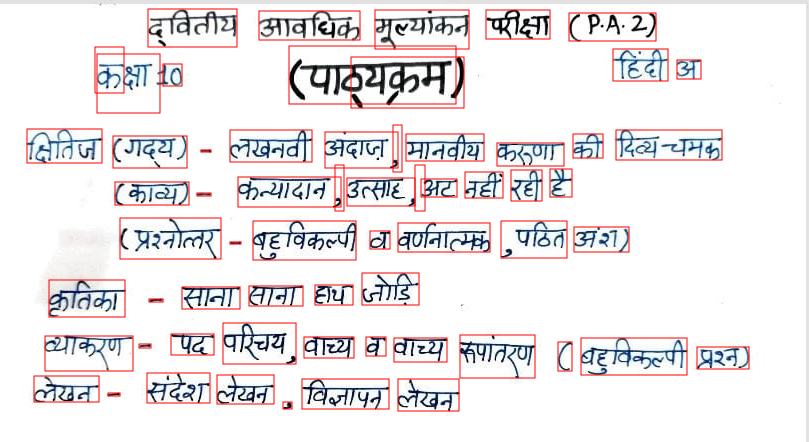 द्वितीय आवधिक मूल्यांकन परीक्षा (P.A.2)
कक्षा 10 (पाठ्यक्रम) हिंदी अ
क्षितिज (गद्य) - लखनवी अंदाज़, मानवीय करुणा की दिव्य-चमक
(काव्य) - कन्यादान, उत्साह, अट नहीं रही है
(प्रश्नोत्तर - बहुविकल्पी व वर्णनात्मक, पठित अंश)
कृतिका - साना साना हाथ जोड़ि
व्याकरण - पद परिचय, वाच्य व वाच्य रूपांतरण (बहुविकल्पी प्रश्न)
लेखन - संदेश लेखन, विज्ञापन लेखन